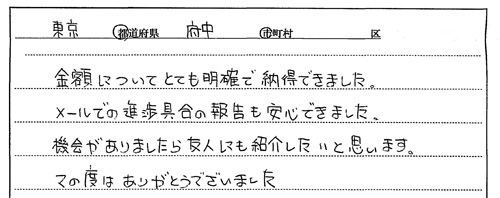 東京 都道府県 府中 市町村 区
金額についてとても明確で納得できました。
メールでの進歩具合の報告も安心できました、
機会がありましたら友人にも紹介したいと思います。
この度はありがとうございました